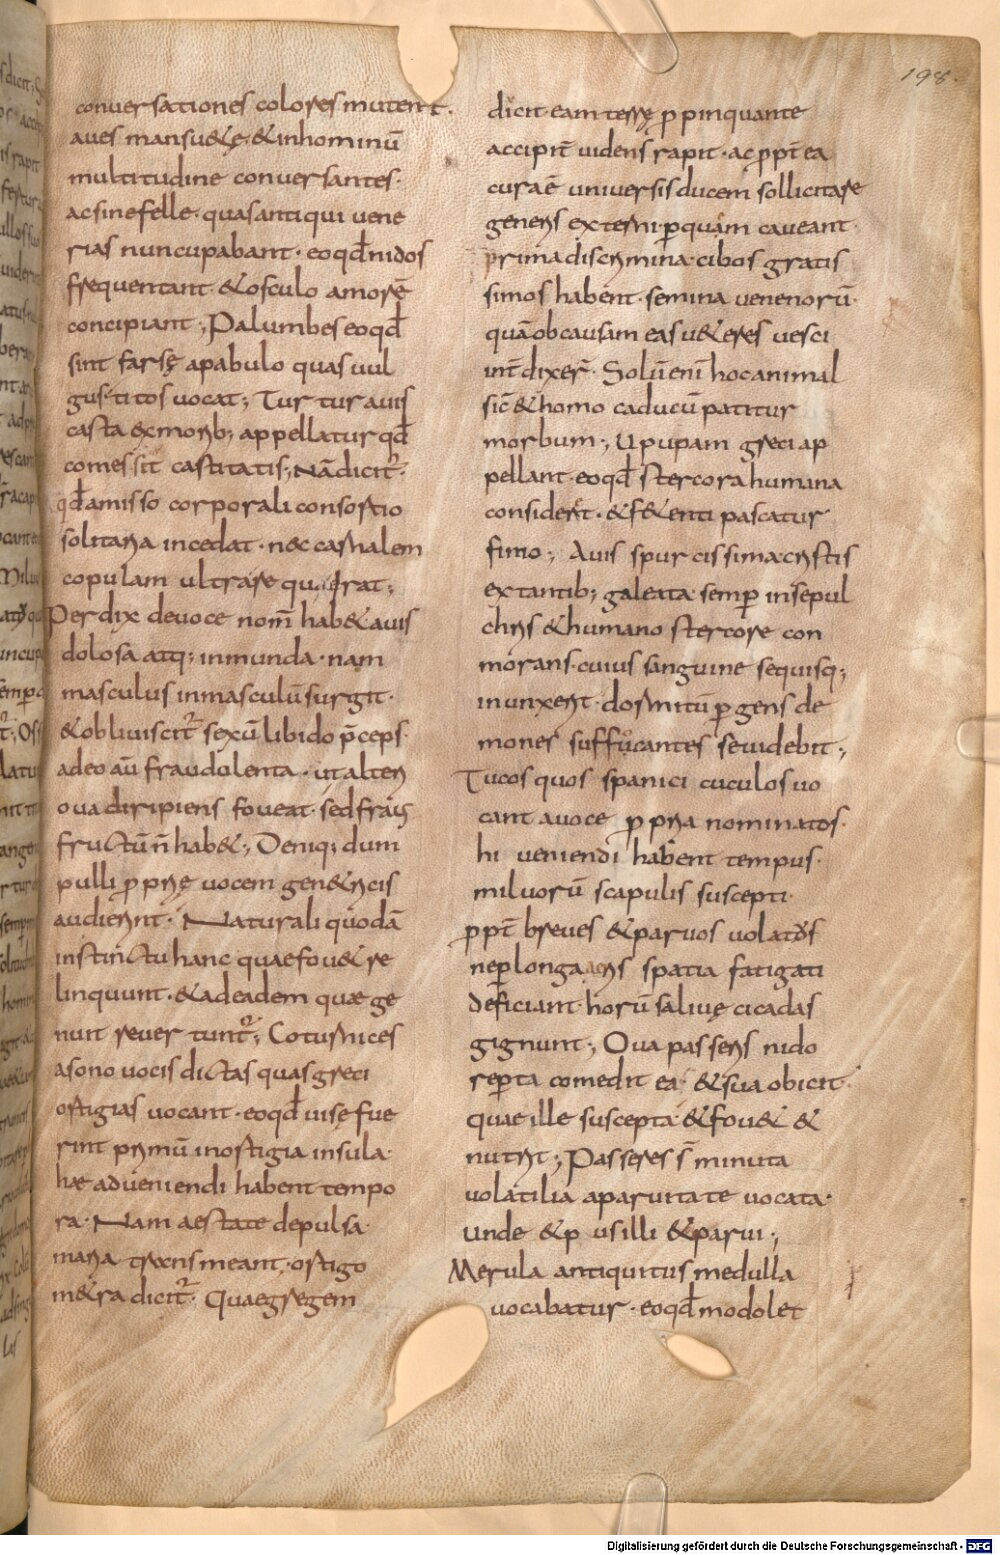 198.
conuersationes colores mutent.
aues mansu&ę· &inhominū
multitudine conuersantes·
acsinefelle· quasantiqui uene
rias nuncupabant· eoqđnidos
frequentant· &osculo amorē
concipiant; Palumbes eoqđ
sint farsę apabulo quas uul
gus titos uocat; Turtur auis
casta &morib; appellatur qđ
comes sit castitatis; nādicit᷑·
qđamisso corporali consortio
solitaria incedat· nec carnalem
copulam ultrare quaerat;
Perdix deuoce nom̄ hab& auis
dolosa atq; inmunda· nam
masculus inmasculūsurgit·
&obliuiscit᷑ sexū libido p̄ceps·
adeo aū fraudolenta· ut alteri
oua diripiens foueat· sedfraus
fructūn̄ hab&; Deniq; dum
pulli ꝓprię uocem gen&ricis
audierint· Naturali quodā
instinctu hanc quaefou& re
linquunt· &adeadem quae ge
nuit reuertunt᷑; Coturnices
asono uocis dictas quas greci
ortigias uocant· eoqđ uisę fue
rint primū inortigia insula·
hae adueniendi habent tempo
ra· Nam aestate depulsa·
maria transmeant· ortigo
m&ra dicit᷑· Quaegregem
dicit· eam terrę ꝓpinquante
accipit̄ uidens rapit· acꝓpt̄ ea
curaē uniuersis ducem sollicitare
generis externi· ꝑquam caueant·
prima discrimina· cibos gratis
simos habent· semina uenenorū·
quāobcausam eas u&eres uesci
int̄dixer̄· Solū enī hocanimal
sic̄ &homo caducū patitur
morbum; Upupam greci ap
pellant· eoqđ stercora humana
considert· &f&enti pascatur
fimo; Auis spurcissima cristis
extantib; galeata· semꝑ insepul
chris &humano stercore con
morans· cuius sanguine sequisq;
inunxerit· dormitū ꝑgens de
mones suffocantes seuidebit;
Tucos quos spanici cuculos uo
cant auoce ꝓpria nominatos·
hi ueniendi habent tempus·
miluorū scapulis suscepti·
ꝓpt̄ breues &paruos uolatos
neꝑlonga aeris spatia fatigati
deficiant· horū saliuę cicadas
gignunt; Oua passeris nido
reꝑta comedit ea· &sua obicit·
quae ille suscepta &fou& &
nutrit; Passeres s̄ minuta
uolatilia aparuitate uocata·
unde &pusilli &parui;
Merula antiquitus medulla
uocabatur· eoqđ modolet
Digitalisierung gefördert durch die Deutsche Forschungsgemeinschaft - DFG